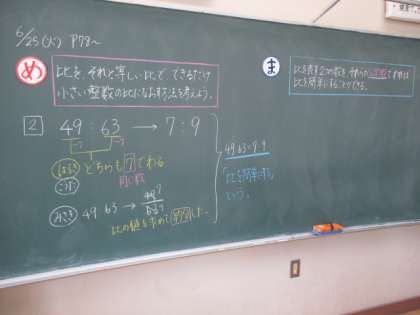 6/25(火) P78~
め
比を、それと等しい比で、できるだけ
小さい整数の比になおす方法を考えよう。
2
49:63 → 7:9
÷7 ÷7
どちらも7でわる
公約数
みさき 49:63 → 49/63 7/9
比の値を求めて約分した。
49:63=7:9
「比を簡単にする」
という。
ま
比を表す2つの数を、それらの
比を簡単にすることができる。